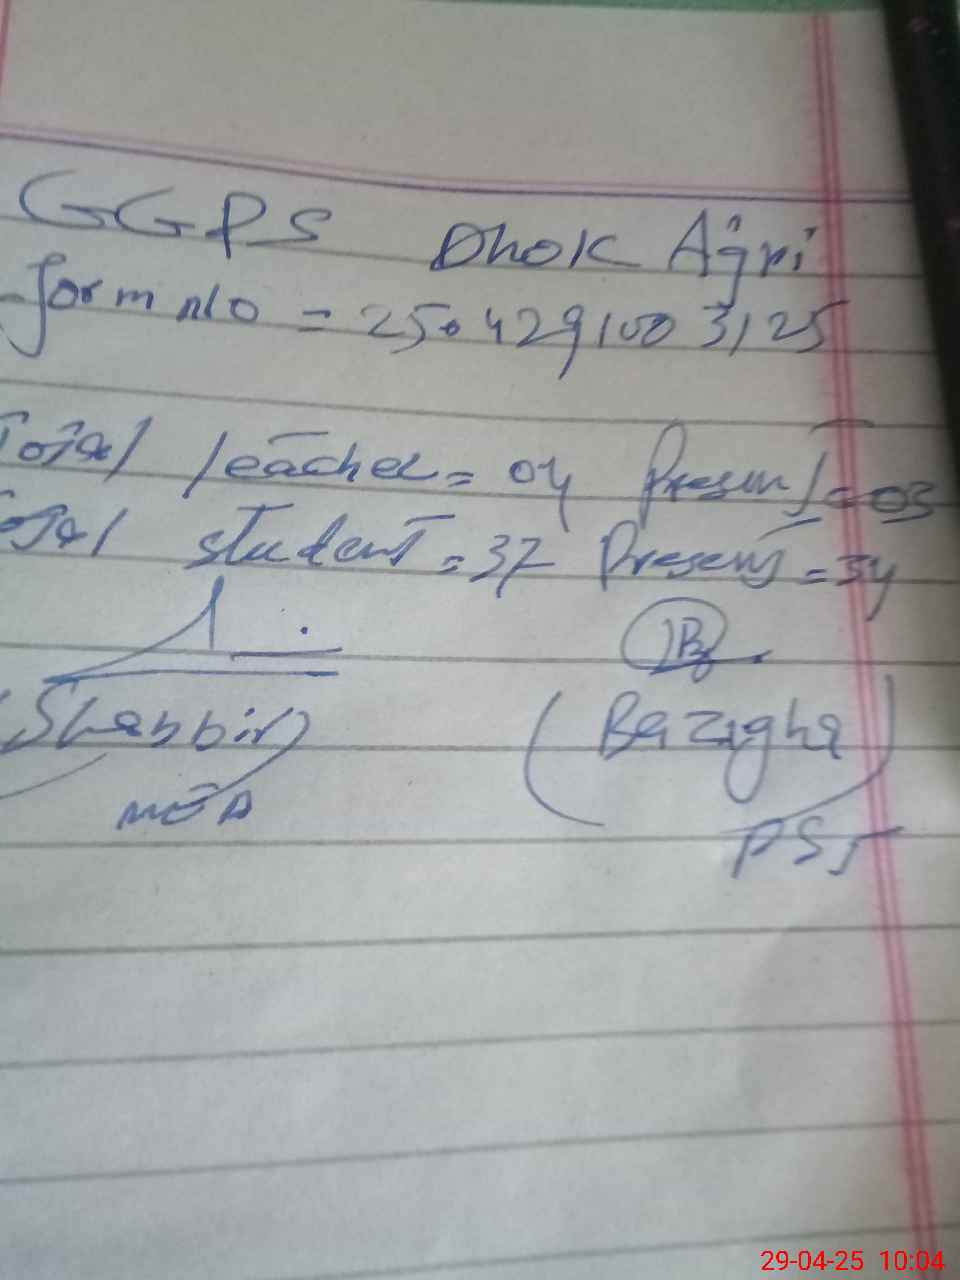 GGPS Dhok Agri
form no = 2504291003125
Total Teacher = 04 Present = 03
Total student = 37 Present = 34
(Shabbir) (Bazigha)
MEA PST
29-04-25 10:04